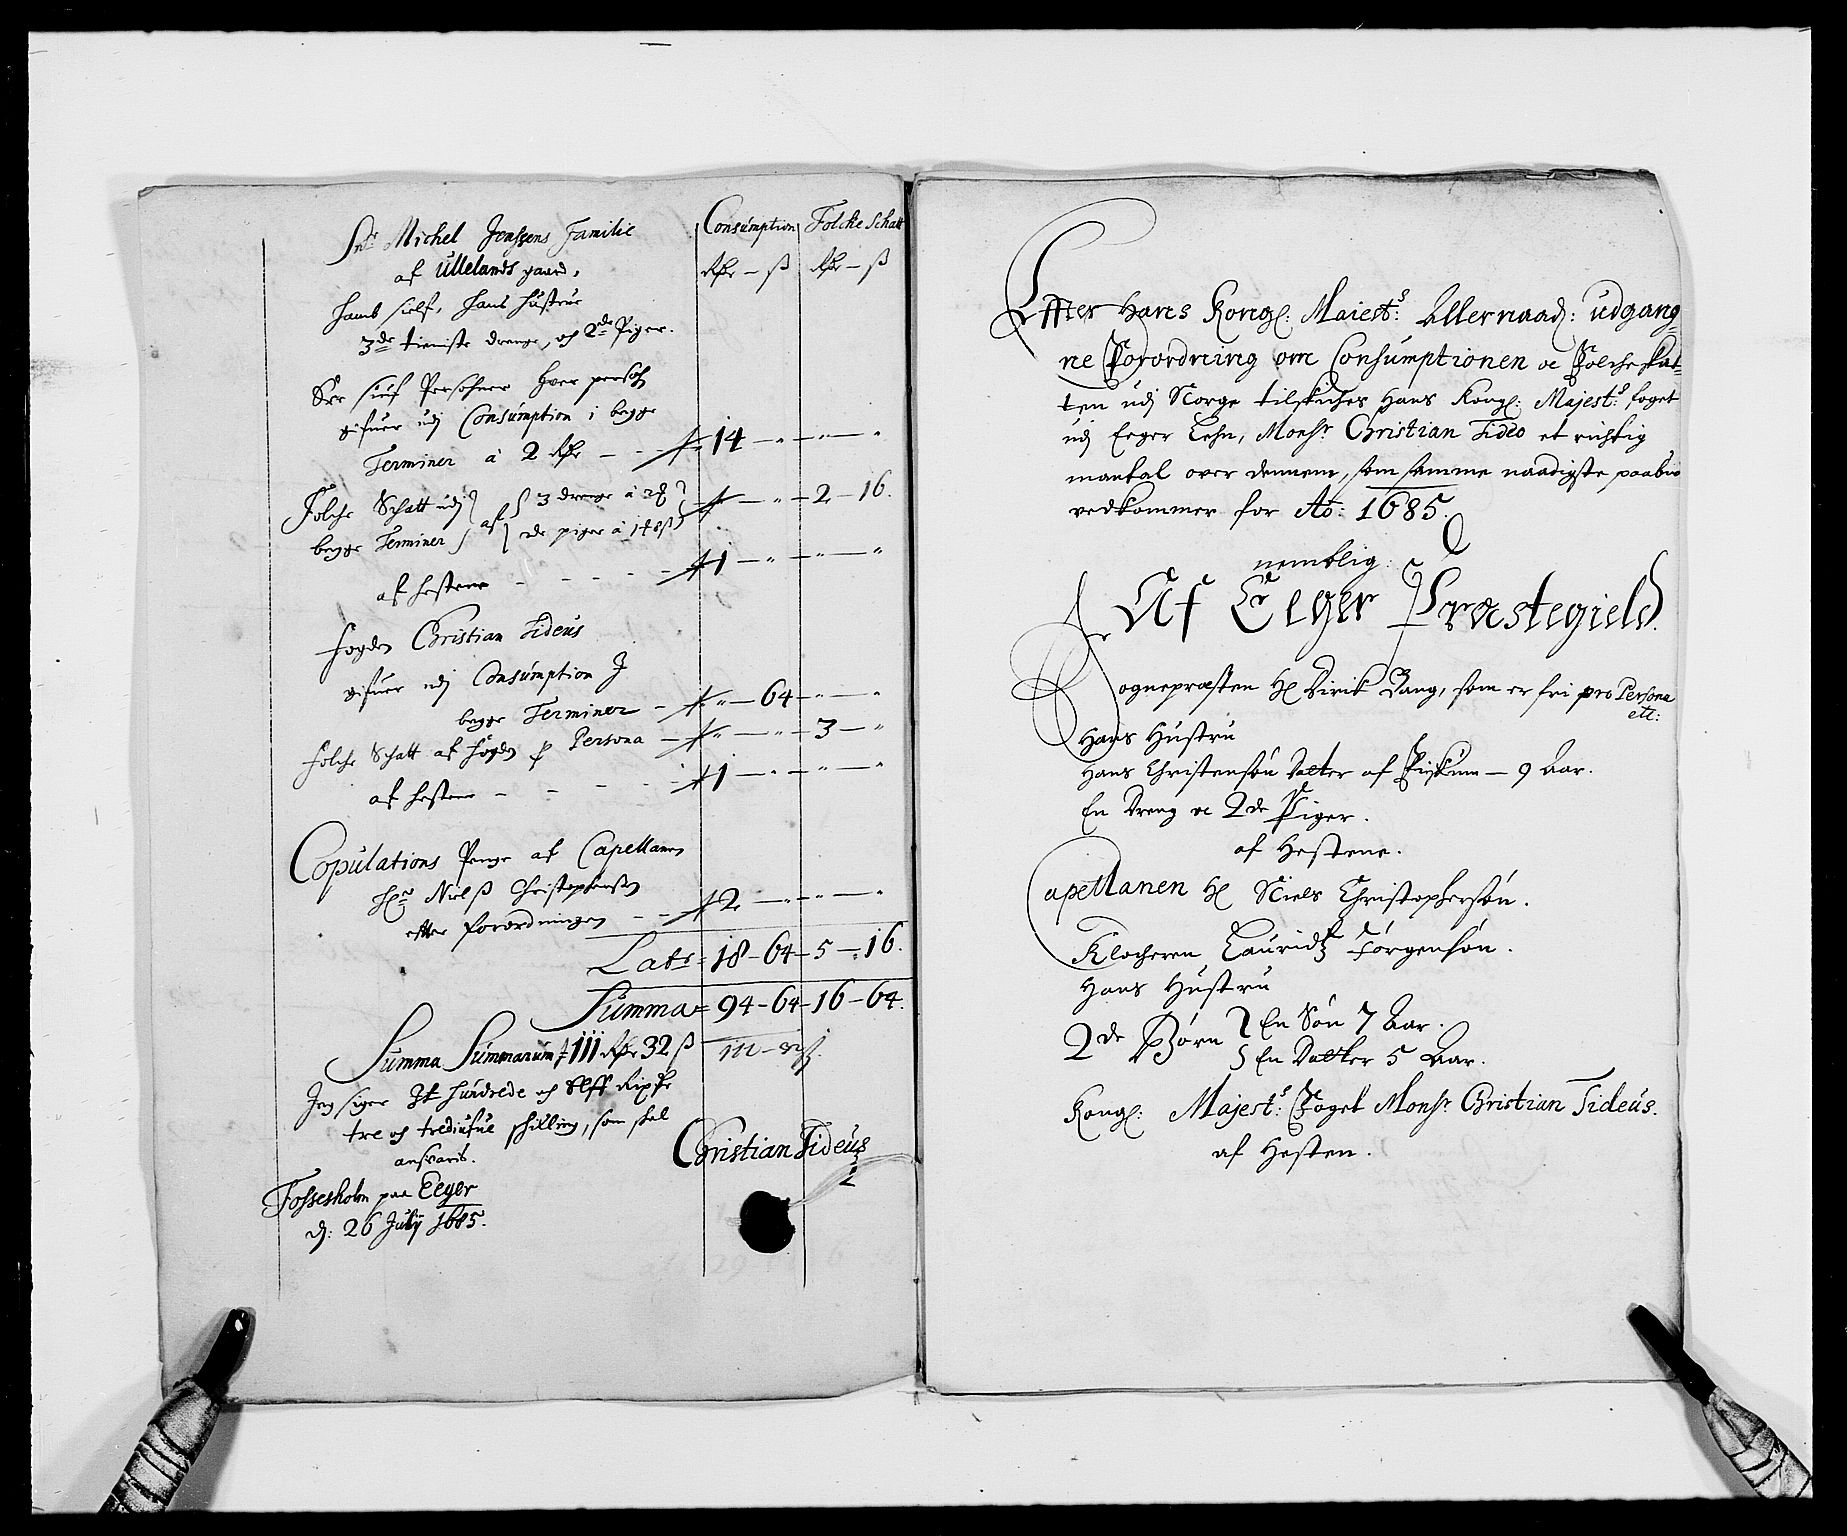 Consumption Folche Schatt
Rdr — ß Rdr — ß
Snr Michel Jenssens Familie
af Ullelands gaard,
hans sielf, hans hustrue
3de tieniste drenge, och 2de Piger.
Er siuf Persohner hver persohn
gifuer udj Consumption i begge
Terminer à 2 Rdr - - 14 — „ — „ — „
Folche Schatt udj 3 drenge à
begge Terminer af 2de piger à 2 — 16.
af hestene - - - - 1 — „ — „ — „
fogden Christian Tideus
gifuer udj Consumption J
begge Terminer - „ — 64 — „ — „
folche Schatt af fogden p Persona - „ — „ — 3 — „
af hestene - - - - 1 — „ — „ — „
Copulations Penge af Capellanen
Hr Nielß Christophersen
efter forordningen - - 2 — „ — „ — „
Lats = 18 - 64 - 5 - 16.
Summa = 94 - 64 - 16 - 64.
Summa Summarum 111 Rdr 32 ß 111 - 32 ß.
Jeg siger Et hundrede och Elff Rixdr
tre och trediufue skilling, som skal
ansvaris.
Christian Tideus
Fossesholm paa Eeger
d: 26 Julij 1685.
Effter Hans Kongl: Maiests: Allernaad: udgang=
ne Forordning om Consumptionen oc Folcheskat=
ten udj Norge tilskiches Hans Kongl: Majests: foget
udj Eeger Lehn, Monsr Christian Tideo et richtig
mantal over dennem, som samme naadigste paabud
vedkommer for Ao: 1685.
nemblig:
Af Eeger Præstegield.
Sognepræsten Hr Dirik Bang, som er fri pro Persona
etc:
Hans Hustru
Hans Christensøn Datter af Fiskum — 9 Aar.
En Dreng oc 2de Piger.
af Hestene.
Capellanen Hr Niels Christophersøn.
Klocheren Lauridtz Jørgensøn.
Hans Hustru
2de Børn En Søn 7 Aar.
En Datter 5 Aar.
Kongl: Majests: Foget Monsr Christian Tideus.
af Hesten.